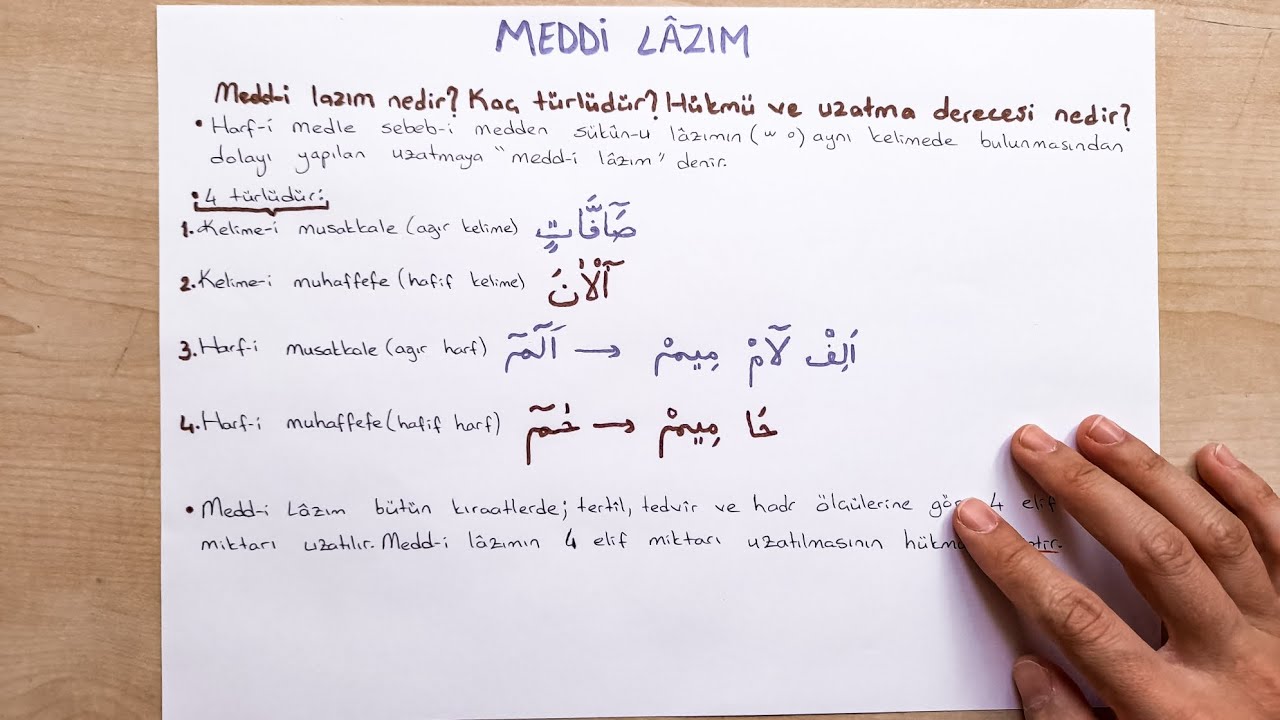 MEDDİ LÂZIM
Medd-i lazım nedir? Kaç türlüdür? Hükmü ve uzatma derecesi nedir?
• Harf-i medle sebeb-i medden sükûn-u lâzımın ( ّ ْ ) aynı kelimede bulunmasından
dolayı yapılan uzatmaya "medd-i lâzım" denir.
• 4 türlüdür:
1. Kelime-i musakkale (ağır kelime) صَآفَّاتٍ
2. Kelime-i muhaffefe (hafif kelime) آٰلْاٰنَ
3. Harf-i musakkale (ağır harf) اَلٓمٓ → اَلِفْ لَآمْ مِيمْ
4. Harf-i muhaffefe (hafif harf) حٰمٓ → حَا مِيمْ
• Medd-i Lâzım bütün kıraatlerde; tertîl, tedvîr ve hadr ölçülerine 4 elif
miktarı uzatılır. Medd-i lâzımın 4 elif miktarı uzatılmasının